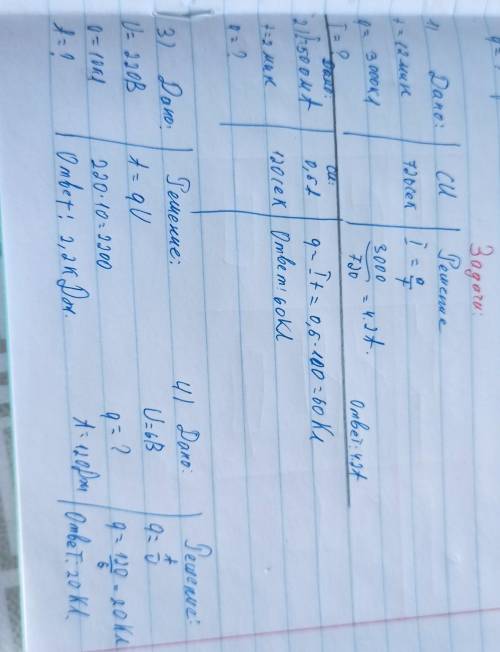 Задачи:
1) Дано: СИ Решение
t = 12 мин 720 сек I = q/t
q = 3000 Кл 3000/720 = 4.2 А.
I = ? Ответ: 4.2 А
Дано: СИ:
2) I = 500 мА 0,5 А q = It = 0,5 · 100 = 60 Кл
t = 2 мин 120 сек Ответ: 60 Кл
q = ?
3) Дано: Решение:
U = 220 В A = qU
q = 10 Кл 220 · 10 = 2200
A = ? Ответ: 2,2 кДж.
4) Дано: Решение:
U = 6 В q = A/U
q = ? q = 120/6 = 20 Кл
A = 120 Дж Ответ: 20 Кл